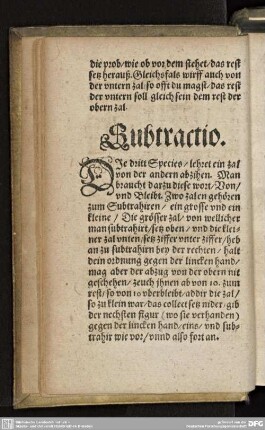 die prob/ wie ob vor dem stehet/ das rest
setz herauß. Gleichsfals wirff auch von
der vntern zal/ so offt du magst/ das rest
der vntern soll gleich sein dem rest der
obern zal.
Subtractio.
DIe dritt Species/ lehret ein zal
von der andern abzihen. Man
braucht darzu diese wort/ Von/
vnd Bleibt. Zwo zalen gehören
zum Subtrahiren/ ein grosse vnd ein
kleine/ Die grösser zal/ von wellicher
man subtrahirt/ setz oben/ vnd die klei-
ner zal vnten/ setz ziffer vnter ziffer/ heb
an zu subtrahirn bey der rechten/ halt
dein ordnung gegen der lincken hand/
mag aber der abzug von der obern nit
geschehen/ zeuch ihnen ab von 10. zum
rest/ so von 10 vberbleibt/ addir die zal/
so zu klein war/ das collect setz nider/ gib
der nechsten figur (wo sie verhanden)
gegen der lincken hand/ eins/ vnd sub-
trahir wie vor/ vnnd also fort an.
DFG